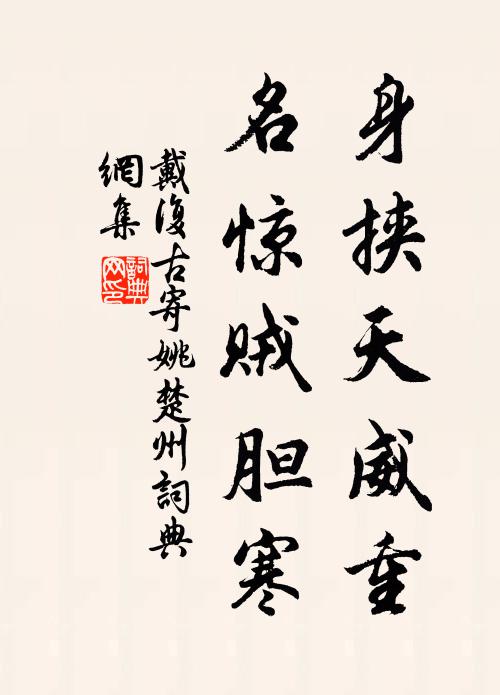 身挟天威重
名惊贼胆寒
戴復古寄姚楚州詞典
網集
詞典
网印